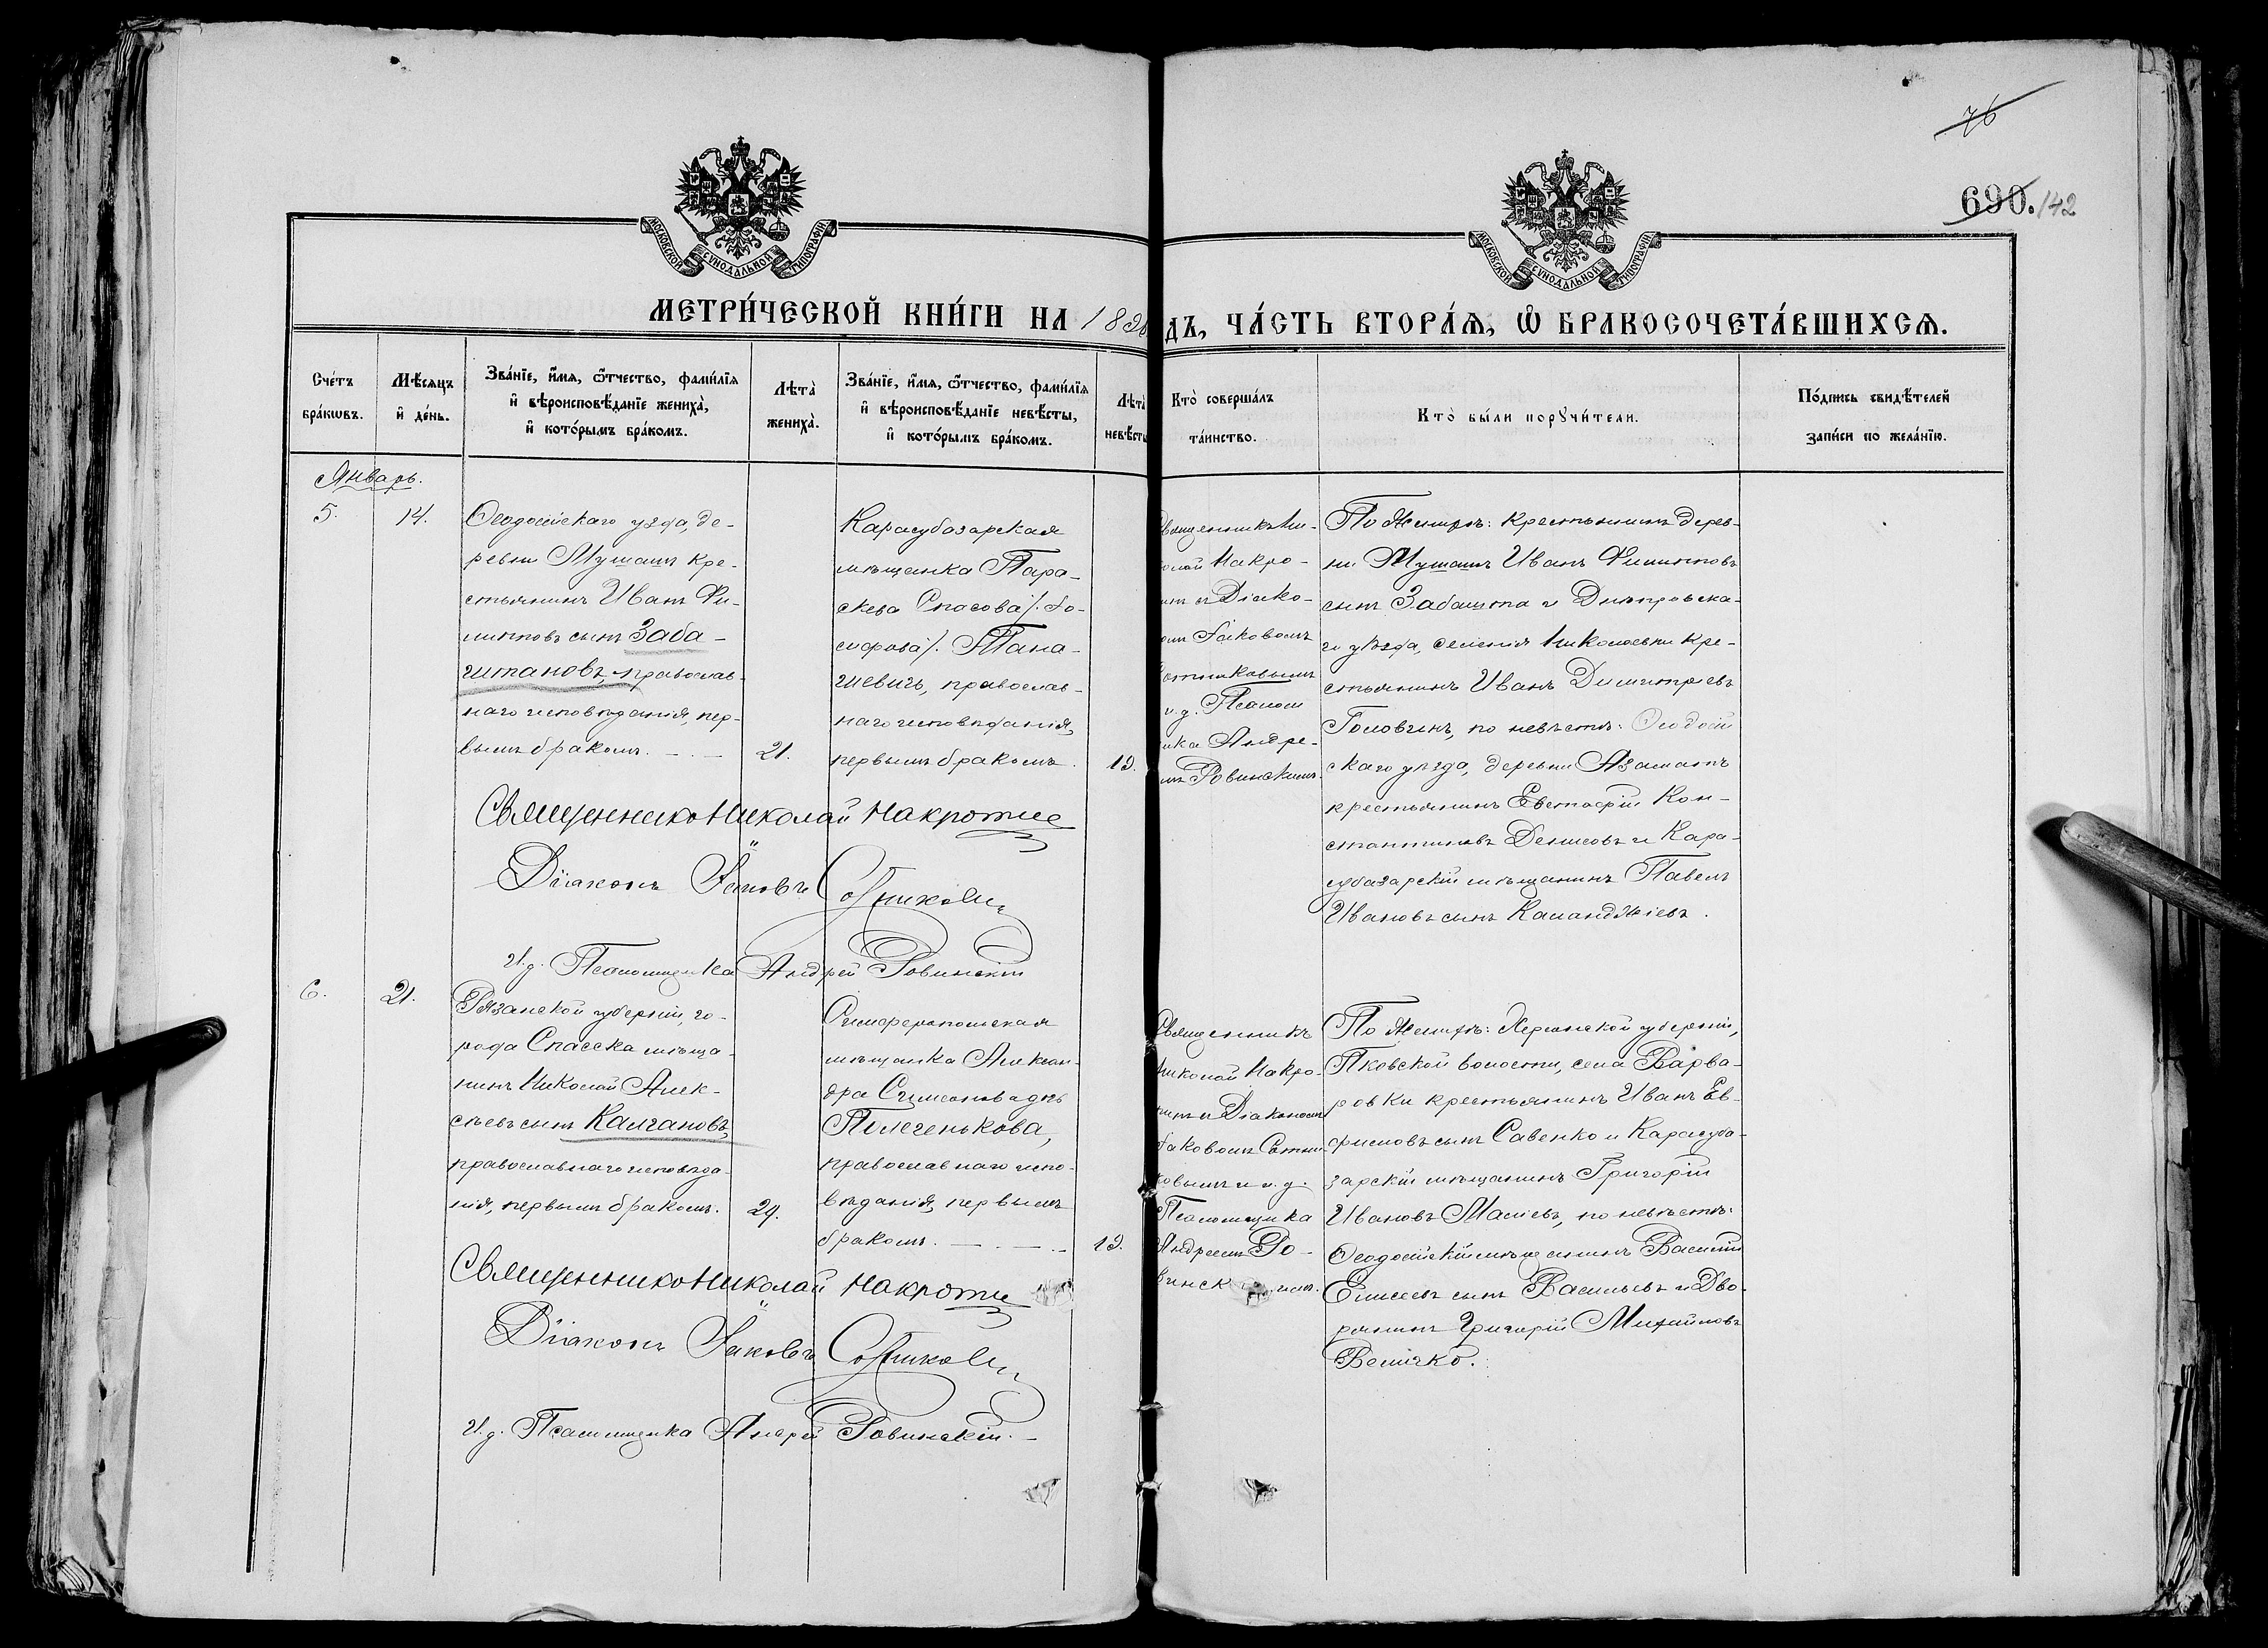 76
690. 142
МОСКОВСКОЙ СѴНОДАЛЬНОЙ ТИПОГРАФІИ
МОСКОВСКОЙ СѴНОДАЛЬНОЙ ТИПОГРАФІИ
МЕТРИ́ЧЕСКОЙ КНИ́ГИ НА 189
ДЪ, ЧА́СТЬ ВТОРА́Ѧ, Ѡ҆ БРАКОСОЧЕТА́ВШИХСѦ.
Сче́тъ бра́кѡвъ.
Мѣ́сяцъ и҆ де́нь.
Зва́нїе, и҆́мя, ѻ҆́тчество, фами́лїя и҆ вѣроисповѣ́данїе жениха̀, и҆ кото́рымъ бра́комъ.
Лѣта̀ жениха̀.
Зва́нїе, и҆́мя, ѻ҆́тчество, фами́лїя и҆ вѣроисповѣ́данїе невѣ́сты, и҆ кото́рымъ бра́комъ.
Лѣта̀ невѣ́сты
Кто̀ соверша́лъ та́инство.
Кто̀ бы́ли порꙋчи́тели.
По́дпись свидѣ́телей за́писи по жела́нїю.
Январь.
5.
14.
Ѳеодосійскаго уѣзда, де-
ревни Мушашъ кре-
стьянинъ Иванъ Фи-
липповъ сынъ Заба-
штановъ, православ-
наго исповѣданія, пер-
вымъ бракомъ.
21.
Карасубазарская
мѣщанка Пара-
скева Спасова /. Іо-
сифова /. Пана-
иевичъ, православ-
наго исповѣданія,
первымъ бракомъ.
19.
Священникъ Ни-
олай Макро-
Діако-
омъ Іаковомъ
отниковымъ
и. д. Псалом
ика Андре-
мъ Ровинскимъ.
По Женихѣ: крестьянинъ дерев-
ни Мушашъ Иванъ Филипповъ
сынъ Забашта и Днѣпровска-
го уѣзда, селенія Николаевки кре-
стьянинъ Иванъ Димитріевъ
Головинъ, по невѣстѣ: Ѳеодосій
скаго уѣзда, деревни Азаматъ
крестьянинъ Евстафій Кон-
стантиновъ Денисовъ и Кара-
субазарскій мѣщанинъ Павелъ
Ивановъ сынъ Каманджіевъ.
Священникъ Николай Макротие
Діаконъ Іаковъ Сотниковъ
И. д. Псаломщика Андрей Ровинскій
6.
21.
Рязанской губерніи, го-
рода Спасска мѣща-
нинъ Николай Алек-
сѣевъ сынъ Калгановъ,
православнаго исповѣда-
нія, первымъ бракомъ.
29.
Симферопольская
мѣщанка Алексан-
дра Симеонова дчь
Пелегенькова,
православнаго испо-
вѣданія, первымъ
бракомъ.
19.
Священникъ
Николай Макро-
Діакономъ
Іаковомъ Сотни-
ковымъ и и. д.
Псаломщика
Андреемъ Ро-
винск имъ.
По Женихѣ: Херсонской губерніи,
Пковской волости, села Варва-
ровки крестьянинъ Иванъ Ев-
фимовъ сынъ Савенко и Карасуба-
зарскій мѣщанинъ Григорій
Ивановъ Маліевъ, по невѣстѣ:
Ѳеодосійскій мѣщанинъ Василій
Елисеевъ сынъ Васильевъ и Дво-
рянинъ Григорій Михайловъ
Величко.
Священникъ Николай Макротие
Діаконъ Іаковъ Сотниковъ
И. д. Псаломщика Андрей Ровинскій.